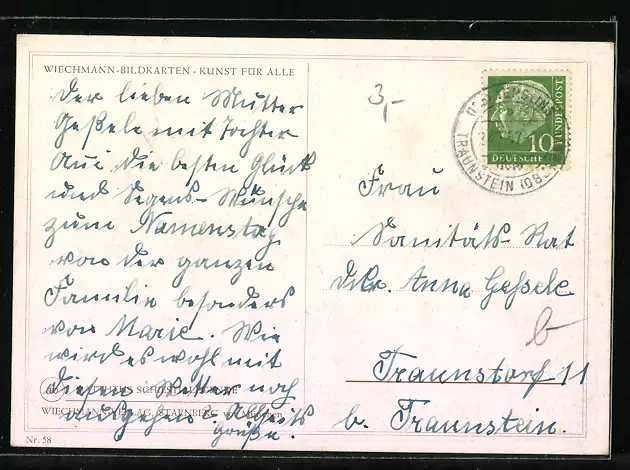 WIECHMANN-BILDKARTEN · KUNST FÜR ALLE
Der lieben Mutter
Geßele mit Tochter
die besten Glück
und Segens-Wünsche
zum Namenstag
von der ganzen
Familie besonders
von Marie. Wie
wird es wohl mit
diesem Wetter noch
Grüße.
WIECHMANN-VERLAG, STARNBERG
Nr. 58
3,-
10
DEUTSCHE
BUNDESPOST
TRAUNSTEIN (OBB
Frau
Sanitäts-Rat
Anna Gessele
b
Traunstorf 11
b. Traunstein.